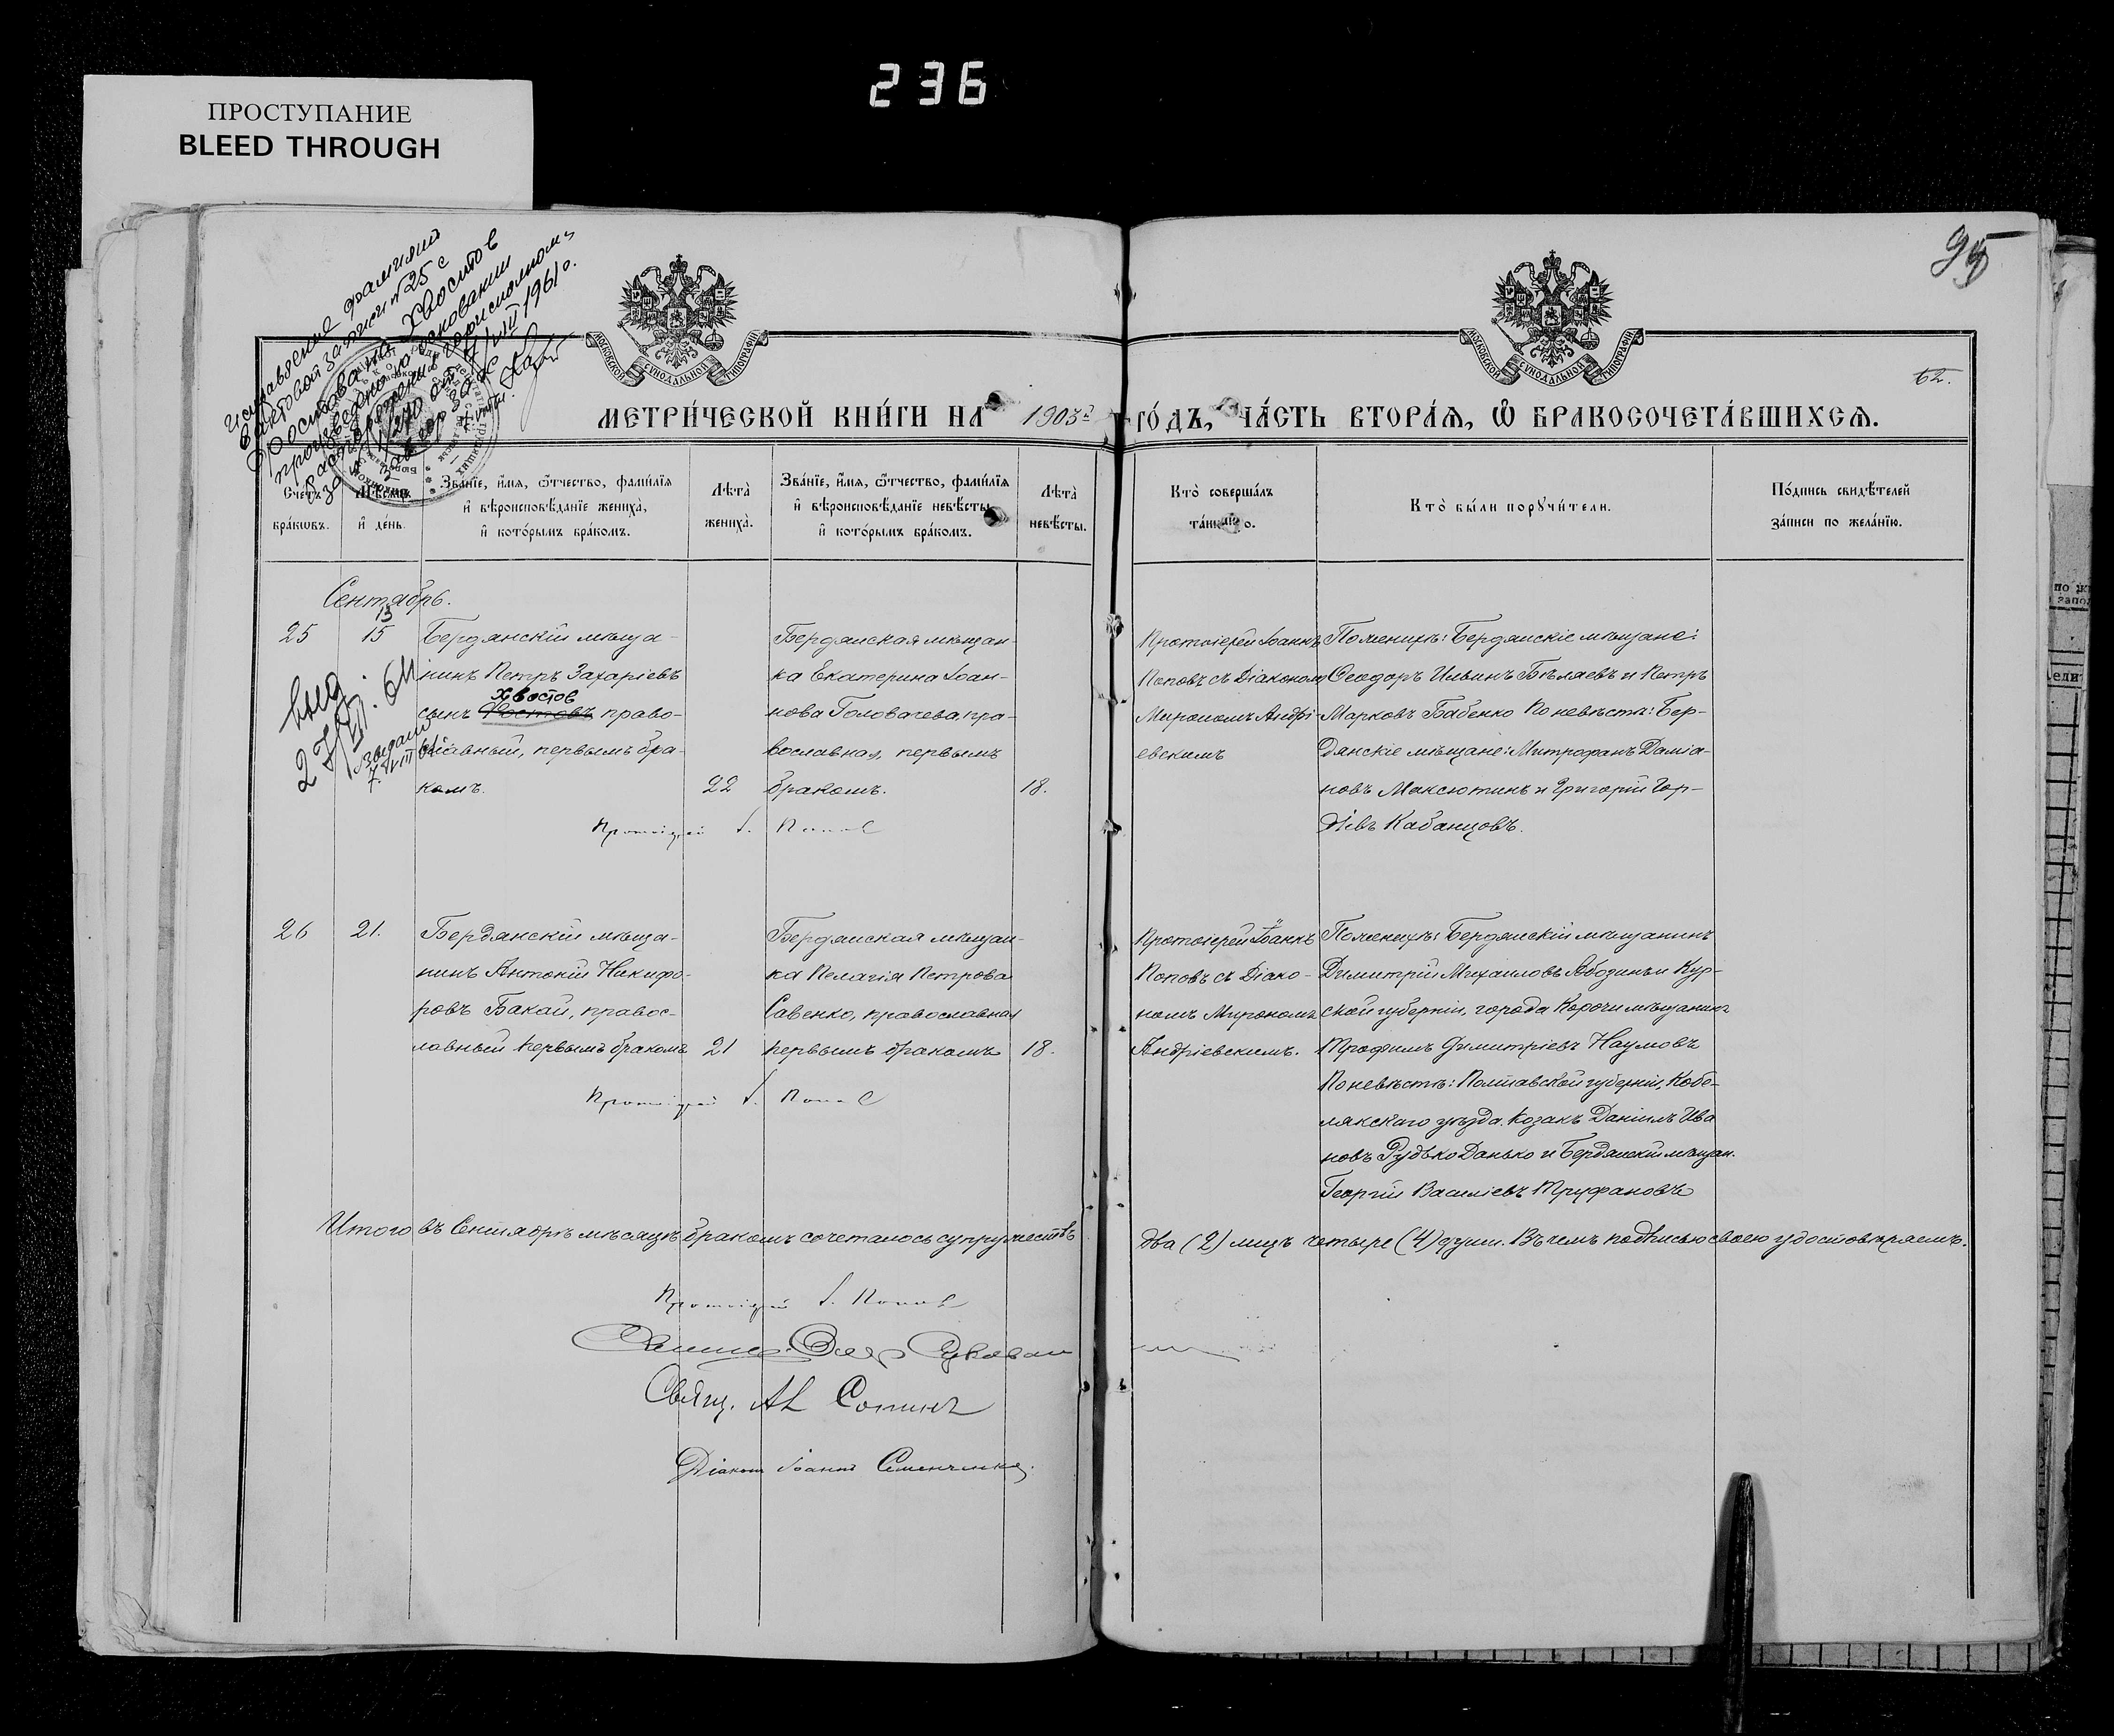 236
ПРОСТУПАНИЕ
BLEED THROUGH
95
62.
исправление фамилии
в актовой записи №25 с
Фостова на Хвостов
произведено на основании
1961 г.
МОСКОВСКОЙ СѴНОДАЛЬНОЙ ТИПОГРАФІИ
МОСКОВСКОЙ СѴНОДАЛЬНОЙ ТИПОГРАФІИ
МЕТРИ́ЧЕСКОЙ КНИ́ГИ НА 1903й ГО́ДЪ, ЧА́СТЬ ВТОРА́Я, Ѡ БРАКОСОЧЕТА́ВШИХСѦ.
Счетъ бра́кωвъ.
Мѣ́сѧцъ и҆ де́нь.
Зва́нїе, и҆́мя, ѻ҆́тчество, фами́лїя и҆ вѣроисповѣ́данїе жениха̀, и҆ кото́рымъ бра́комъ.
Лѣ́та̀ жениха̀.
Зва́нїе, и҆́мя, ѻ҆́тчество, фами́лїя и҆ вѣроисповѣ́данїе невѣ́сты, и҆ кото́рымъ бра́комъ.
Лѣ́та̀ невѣ́сты.
Кто̀ соверша́лъ та́инство.
Кто̀ бы́ли порꙋчи́тели.
По́дпись свидѣ́телей за́писи по жела́нїю.
Сентябрь.
13
25 15
Бердянскій мѣща-
нинъ Петръ Захаріевъ
Хвостов
сынъ Фостовъ право-
славный, первымъ бра-
комъ.
22
Бердянская мѣщан-
ка Екатерина Іоан-
нова Головачева пра-
вославная, первымъ
бракомъ.
18.
Протоіерей Іоаннъ
Поповъ съ Діакономъ
Мирономъ Андрі-
евскимъ
По женихѣ: Бердянскіе мѣщане:
Ѳеодоръ Ильинъ Бѣляевъ и Петръ
Марковъ Бабенко По невѣстѣ: Бер-
дянскіе мѣщане: Митрофанъ Даміа-
новъ Максютинъ и Григорій Гор-
діевъ Кабанцовъ.
выд.
Протоіерей І. Поповъ
26 21.
Бердянскій мѣща-
нинъ Антоній Никифо-
ровъ Бакай, правос-
лавный первымъ бракомъ
21
Бердянская мѣщан-
ка Пелагія Петрова
Савенко, православная
первымъ бракомъ
18.
Протоіерей Іоаннъ
Поповъ съ Діако-
номъ Мирономъ
Андріевскимъ.
По женихѣ: Бердянскій мѣщанинъ
Димитрій Михаиловъ Абозинъ и Кур-
ской губерніи, города Корочи мѣщанинъ
Трофимъ Димитріевъ Наумовъ
По невѣстѣ: Полтавской губерніи, Кобе-
лякскаго уѣзда. Козакъ Даніилъ Ива
новъ Рудько Данько и Бердянскій мѣщан.
Георгій Василіевъ Труфановъ
Протоіерей І. Поповъ
Итого въ Сентябрѣ мѣсяцѣ бракомъ сочеталось супружествъ два (2) лицъ четыре (4) души. Въ чемъ подписью своею удостовѣряемъ.
Протоіерей І. Поповъ
Свящ. Ал Сопинъ
Діаконъ Іоаннъ Семенченко.